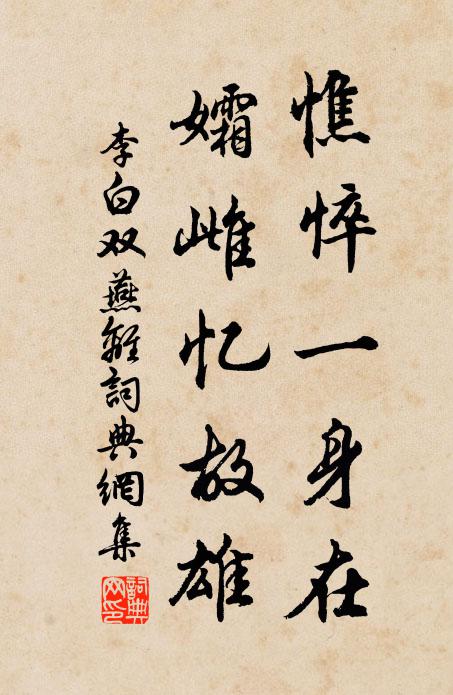 憔悴一身在
孀雌忆故雄
李白双燕離詞典網集
詞典
网印